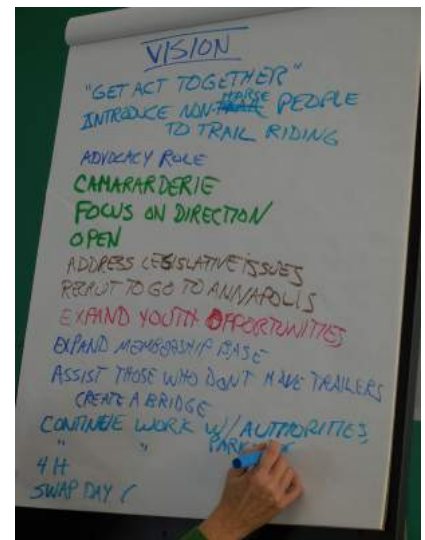 VISION
"GET ACT TOGETHER"
HORSE
INTRODUCE NON- PEOPLE
TO TRAIL RIDING
ADVOCACY ROLE
CAMARARDERIE
FOCUS ON DIRECTION
OPEN
ADDRESS LEGISLATIVE ISSUES
RECRUIT TO GO TO ANNAPOLIS
EXPAND YOUTH OPPORTUNITIES
EXPAND MEMBERSHIP BASE
ASSIST THOSE WHO DON'T HAVE TRAILERS
CREATE A BRIDGE
CONTINUE WORK W/ AUTHORITIES,
" " PARK
4 H
SWAP DAY (